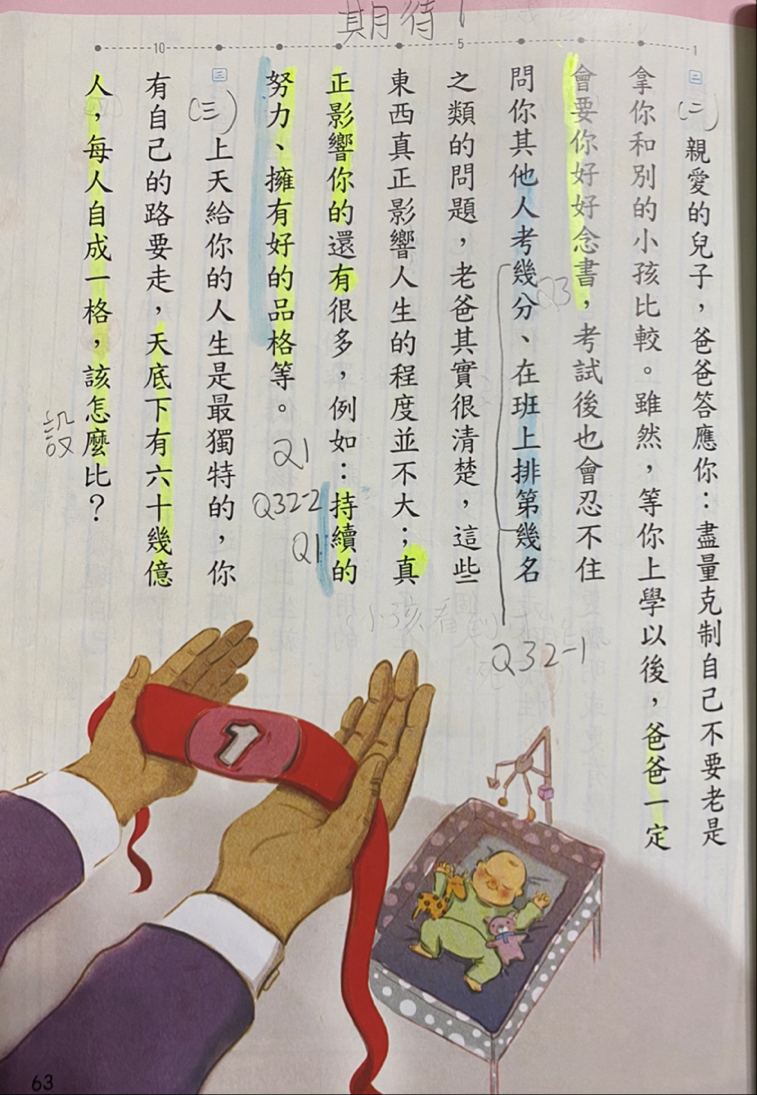 期待！
1
5
10
二
(二)親愛的兒子，爸爸答應你：盡量克制自己不要老是
拿你和別的小孩比較。雖然，等你上學以後，爸爸一定
會要你好好念書，考試後也會忍不住
Q3
問你其他人考幾分、在班上排第幾名
Q32-1
之類的問題，老爸其實很清楚，這些
東西真正影響人生的程度並不大；真
正影響你的還有很多，例如：持續的
Q1
努力、擁有好的品格等。
Q1
Q32-2
三
(三)上天給你的人生是最獨特的，你
有自己的路要走，天底下有六十幾億
人，每人自成一格，該怎麼比？
設
1
63